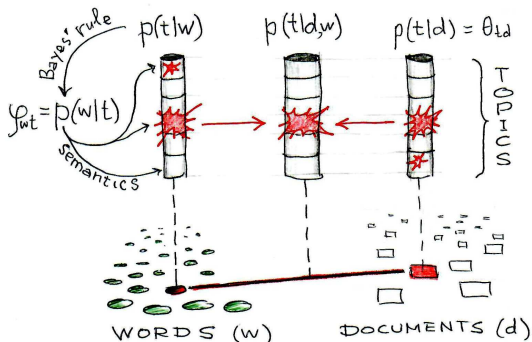 Bayes' rule
p(t|w)
p(t|d,w)
p(t|d) = θtd
φwt = p(w|t)
semantics
TOPICS
WORDS (w)
DOCUMENTS (d)